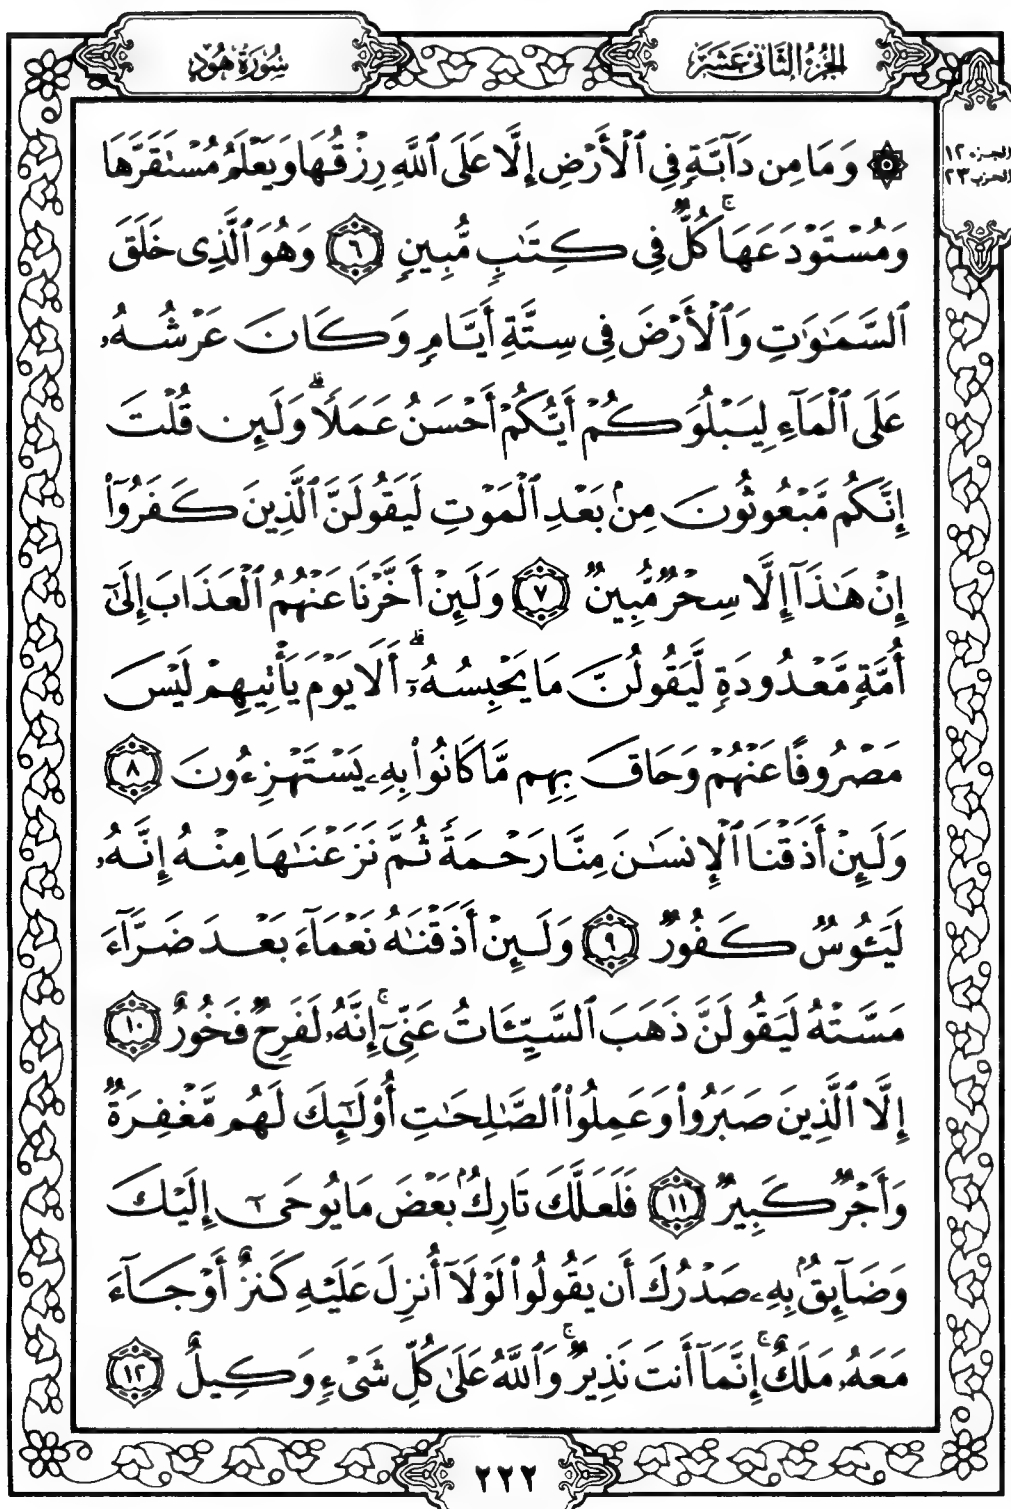 الجزء الثاني عشر
سورة هود
الجزء ١٢
الحزب ٢٣
۞ وَمَا مِن دَآبَّةٍ فِي ٱلْأَرْضِ إِلَّا عَلَى ٱللَّهِ رِزْقُهَا وَيَعْلَمُ مُسْتَقَرَّهَا
وَمُسْتَوْدَعَهَاۚ كُلٌّ فِي كِتَٰبٍ مُّبِينٍ ٦ وَهُوَ ٱلَّذِي خَلَقَ
ٱلسَّمَٰوَٰتِ وَٱلْأَرْضَ فِي سِتَّةِ أَيَّامٍ وَكَانَ عَرْشُهُۥ
عَلَى ٱلْمَآءِ لِيَبْلُوَكُمْ أَيُّكُمْ أَحْسَنُ عَمَلًاۗ وَلَئِن قُلْتَ
إِنَّكُم مَّبْعُوثُونَ مِنۢ بَعْدِ ٱلْمَوْتِ لَيَقُولَنَّ ٱلَّذِينَ كَفَرُوٓا۟
إِنْ هَٰذَآ إِلَّا سِحْرٌ مُّبِينٌ ٧ وَلَئِنْ أَخَّرْنَا عَنْهُمُ ٱلْعَذَابَ إِلَىٰٓ
أُمَّةٍ مَّعْدُودَةٍ لَّيَقُولُنَّ مَا يَحْبِسُهُۥٓۗ أَلَا يَوْمَ يَأْتِيهِمْ لَيْسَ
مَصْرُوفًا عَنْهُمْ وَحَاقَ بِهِم مَّا كَانُوا۟ بِهِۦ يَسْتَهْزِءُونَ ٨
وَلَئِنْ أَذَقْنَا ٱلْإِنسَٰنَ مِنَّا رَحْمَةً ثُمَّ نَزَعْنَٰهَا مِنْهُ إِنَّهُۥ
لَيَـُٔوسٌ كَفُورٌ ٩ وَلَئِنْ أَذَقْنَٰهُ نَعْمَآءَ بَعْدَ ضَرَّآءَ
مَسَّتْهُ لَيَقُولَنَّ ذَهَبَ ٱلسَّيِّـَٔاتُ عَنِّيٓۚ إِنَّهُۥ لَفَرِحٌ فَخُورٌ ١٠
إِلَّا ٱلَّذِينَ صَبَرُوا۟ وَعَمِلُوا۟ ٱلصَّٰلِحَٰتِ أُو۟لَٰٓئِكَ لَهُم مَّغْفِرَةٌ
وَأَجْرٌ كَبِيرٌ ١١ فَلَعَلَّكَ تَارِكٌۢ بَعْضَ مَا يُوحَىٰٓ إِلَيْكَ
وَضَآئِقٌۢ بِهِۦ صَدْرُكَ أَن يَقُولُوا۟ لَوْلَآ أُنزِلَ عَلَيْهِ كَنزٌ أَوْ جَآءَ
مَعَهُۥ مَلَكٌۚ إِنَّمَآ أَنتَ نَذِيرٌۚ وَٱللَّهُ عَلَىٰ كُلِّ شَيْءٍ وَكِيلٌ ١٢
٢٢٢